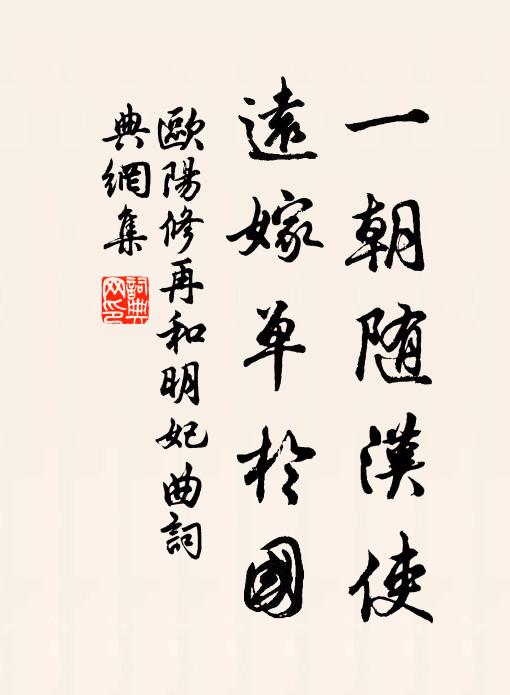 一朝随漢使
遠嫁單於國
歐陽修再和明妃曲詞
典網集
詞典
网印